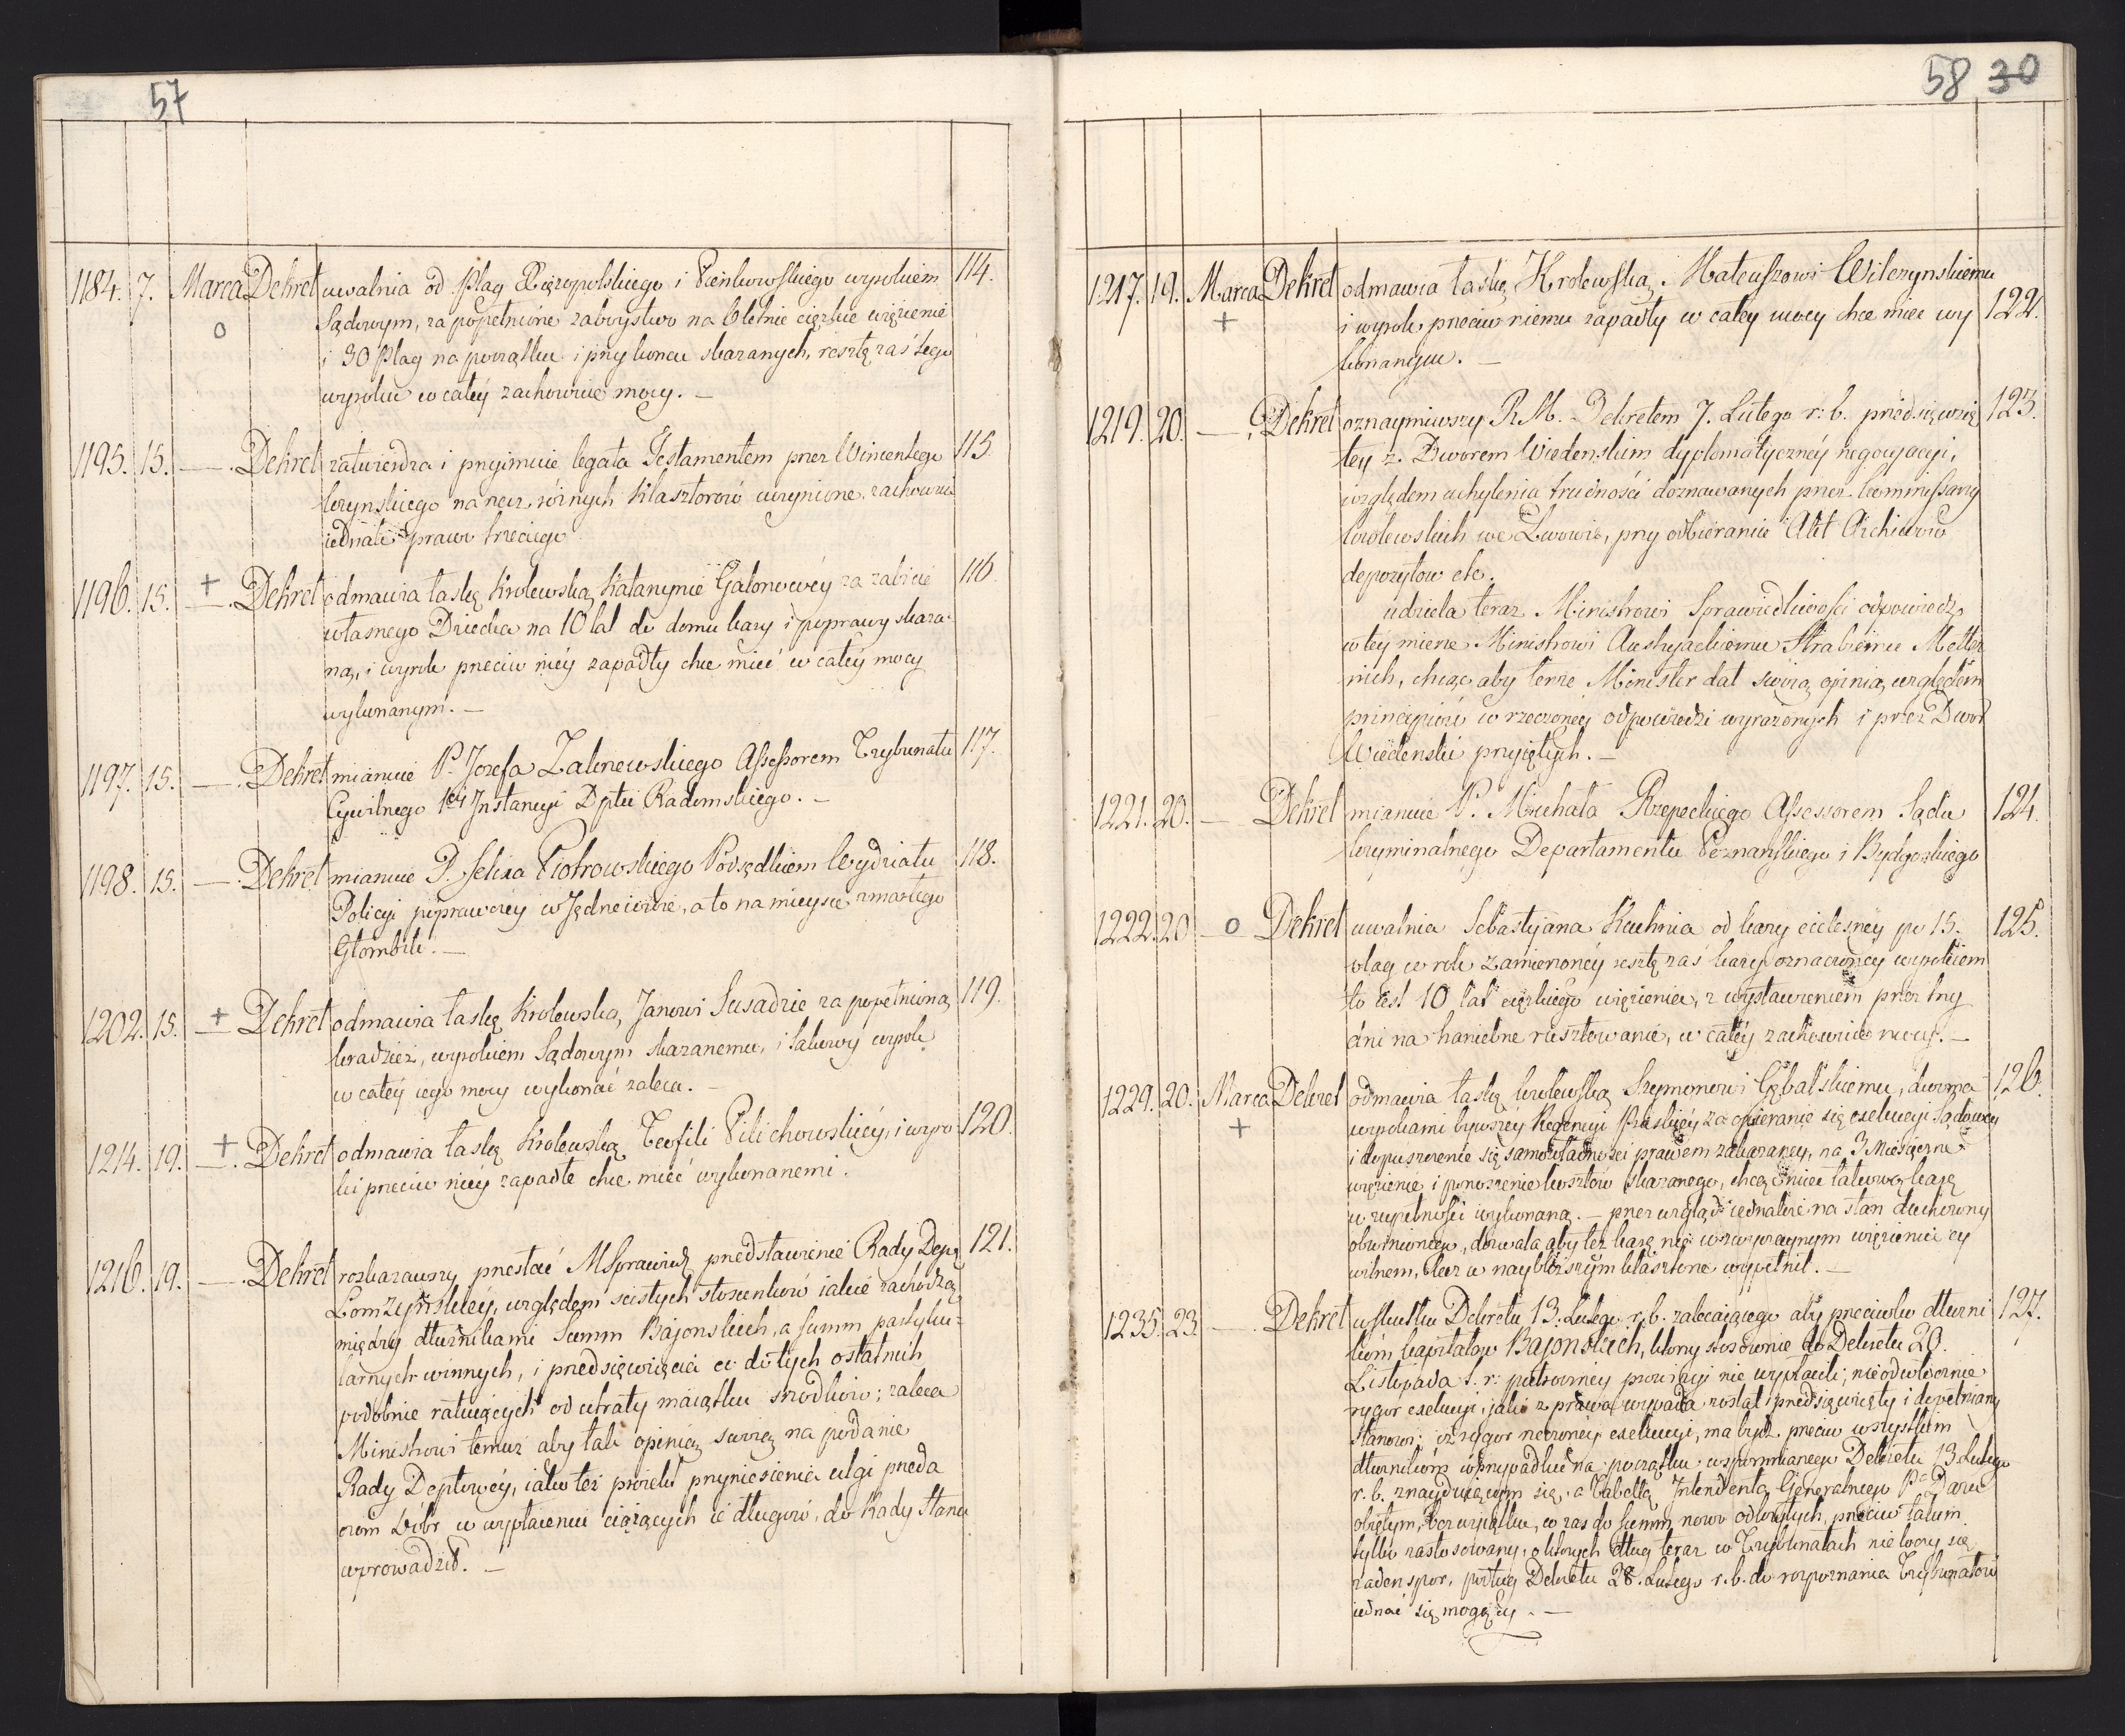 57
1184. 7. Marca Dekret uwalnia od Plag Xięzopolskiego i Pieńkowskiego wyrokiem 114.
o Sądowym, za popełnione zabóystwo na 6letnie cięzkie więzienie
i 30 Plag na początku i przy końcu skazanych, resztę zaś tego
wyroku w całey zachowuie mocy. —
1195. 15. — Dekret zatwierdza i przyimuie legata Testamentem przez Wincentego 115
na rzecz różnych Klasztorów uczynione, zachowuie
iednak prawa trzeciego
1196. 15. + — Dekret odmawia łaskę Krolewską Katarzynie Galonowey za zabicie 116.
własnego Dziecka na 10 lat do domu kary i poprawy skaza-
ną, i wyrok przeciw niéy zapadły chce mieć w całéy mocy
wykonanym. —
1197. 15. — Dekret mianuie P. Jozefa Zalinewskiego Assessorem Trybunału 117.
Cywilnego 1éy Instancyi Dpttu Radomskiego. —
1198. 15. — Dekret mianuie P. felixa Piotrowskiego Podsędkiem Wydziału 118.
Policyi poprawczéy w Jędrzeiowie, a to na mieysce zmarłego
Głombik. —
1202. 15. + — Dekret odmawia łaskę Krolewską Janowi Susadzie za popełnioną 119.
kradzież, wyrokiem Sądowym skazanemu, i takowy wyrok
w całéy iego mocy wykonać zaleca. —
1214. 19. + — Dekret odmawia łaskę Krolewską Teofili Pilichowskiéy, i wyro 120.
ki przeciw niéy zapadłe chce mieć wykonanemi.
1216. 19. — Dekret rozkazawszy przesłać MSprawied przedstawienie Rady Depa 121.
Łomżyńskiéy, względem scisłych stosunków iakie zachodzą
między dłużnikami Summ Bajonskich, a summ partyku-
larnych winnych, i przedsięwzięcia co do tych ostatnich
podobnie ratuiących od utraty maiątku srzodków; zaleca
Ministrowi temuz aby tak opinią swoią na podanie
Rady Deptowéy, iako też proiekt przyniesienia ulgi przeda
żom Dóbr w wypłaceniu ciążących ie długów, do Rady Stanu
wprowadził. —
58 30
1217. 19. Marca Dekret odmawia łaskę Krolewską Mateuszowi Wilczynskiemu
+ i wyrok przeciw niemu zapadły w całey mocy chce miec wy 122.
konanym. —
1219. 20. — Dekret oznaymiwszy R.M. Dekretem 7. Lutego r: b. przedsięwzię 123.
tey z Dworem Wiedenskim dyplomatycznéy negocyacyi,
względem uchylenia trudności doznawanych przez Commissarzy
Krolewskich we Lwowie, przy odbieraniu Akt Archiwow
depozytow etc.
udziela teraz Ministrowi Sprawiedliwości odpowiedz
w téy mierze Ministrowi Austryackiemu Hrabiemu Metter
nich, chcąc aby tenże Minister dał swoią opinią względem
principiów w rzeczonéy odpowiedzi wyrazonych i przez Dwor
Wiedenski przyiętych. —
1221. 20. — Dekret mianuie P. Michała Rzepeckiego Assessorem Sądu 124.
kryminalnego Departamentu Poznanskiego i Bydgoskiego
1222. 20 — o Dekret uwalnia Sebastyana Kuchnia od kary cielesnéy po 15. 125.
plag co rok zamierzonéy resztę zaś kary oznaczonéy wyrokiem
to iest 10 lat cięzkiego więzienia, z wystawieniem przez trzy
dni na haniebne rusztowanie, w całéy zachowuie mocy. —
1229. 20. Marca Dekret odmawia łaskę krolewską Szymonowi Gębalskiemu, dwoma 126.
+ wyrokami bywszéy Regencyi Pruskiéy za opieranie się exekucyi Sądowéy
i dopuszczenie się samowładności prawem zakazanéy, na 3 Miesięczne
więzienie i ponoszenie kosztów skazanego, chcąc mieć takową karę
w zupełności wykonaną. — przez wzgląd iednakże na stan duchowny
obwinionego, dozwala aby tez karę nie w zwyczaynym więzieniu cy
wilnem, lecz w naybliższym klasztorze wypełnił. —
1235. 23. — Dekret w skutku Dekretu 13. Lutego r. b. zalecaiącego aby przeciwko dłużni 127.
kóm kapitałow Bajonskich, ktorzy stosownie do Dekretu 20.
Listopada t. r: putrocznéy prowizyi nie wypłacili; nieodwłocznie
rygor exekucyi, jaki z prawa wypada został przedsięwzięty i dopełniany
Stanowi: iz rygor rzeczonéy exekucyi, ma bydź przeciw wszystkim
dłuznikóm w przypadku na początku wspomnianego Dekretu 13 Lutego
r. b. znayduiącym się, a Tabellą Intendenta Generalnego Pa Daru
obiętym, bez wyiątku, co zas do summ nowo odkrytych, przeciw takim
tylko zastosowany, o ktorych dług teraz w Trybunałach nie toczy się
żaden spor, podług Dekretu 28. Lutego r. b. do rozpoznania Trybunałów
iednać się mogący. —